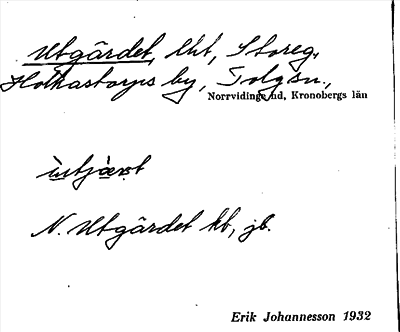 Utgärdet, lht, Storeg,
Hothastorps by, Tolgsn.,
Norrvidinge hd, Kronobergs län
ùtjæ̀rt
N. Utgärdet kb, jb.
Erik Johannesson 1932